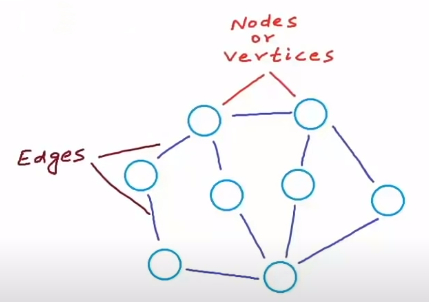 Nodes
or
vertices
Edges